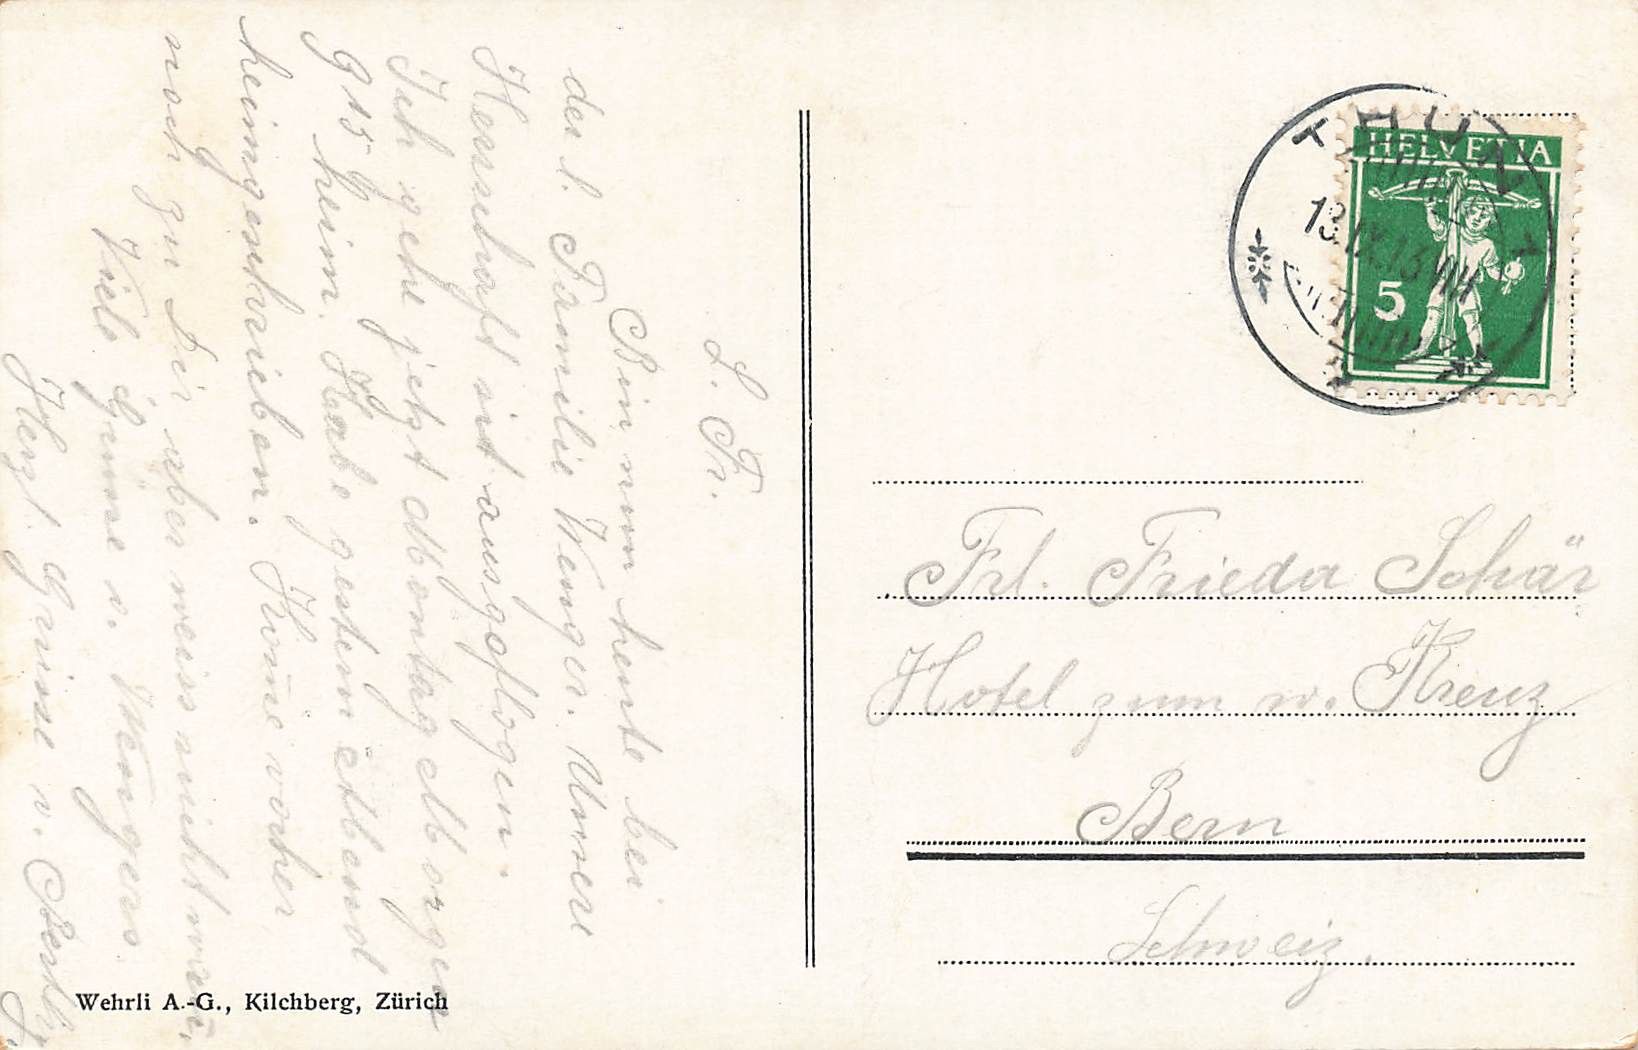 L. Fr.
Bin nun heute bei
der l. Familie Wenger. Unsere
Herrschaft ist ausgeflogen.
Ich gehe jetzt Montag Morgen
9 15 heim. Habe gestern Abend
heimgeschrieben. Kome vorher
noch zu Dir aber weiss nicht wan,
Viele Grüsse v. Wengers
Herzl. Grüsse v. Berthy
Wehrli A.-G., Kilchberg, Zürich
THUN
13.IX.13. VIII
HELVETIA
5
Frl. Frieda Schär
Hotel zum w. Kreuz
Bern
Schweiz.